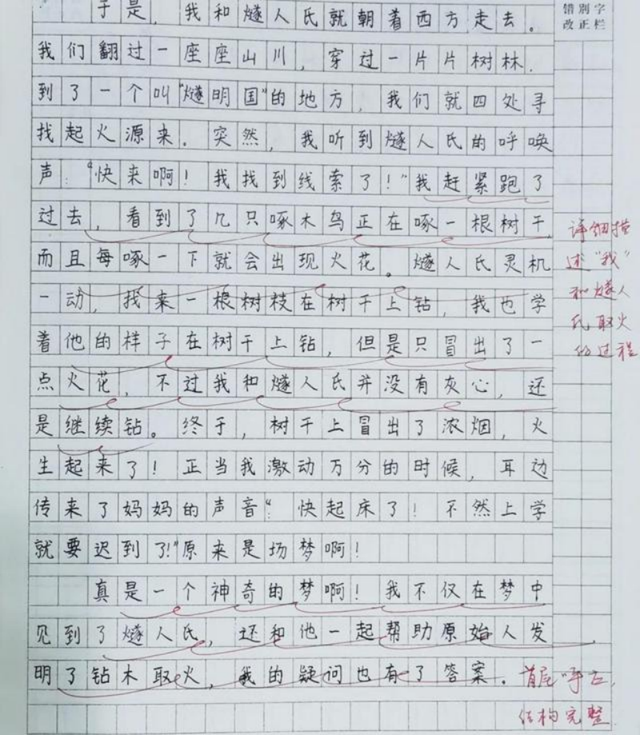 错别字
改正栏
于是，我和燧人氏就朝着西方走去。
我们翻过一座座山川，穿过一片片树林.
到了一个叫“燧明国”的地方，我们就四处寻
找起火源来.突然，我听到燧人氏的呼唤
声“快来啊！我找到线索了！”我赶紧跑了
过去，看到了几只啄木鸟正在啄一根树干，
而且每啄一下就会出现火花。燧人氏灵机
一动，找来一根树枝在树干上钻，我也学
着他的样子在树干上钻，但是只冒出了一
点火花，不过我和燧人氏并没有灰心，还
是继续钻。终于，树干上冒出了浓烟，火
生起来了！正当我激动万分的时候，耳边
传来了妈妈的声音“快起床了！不然上学
就要迟到了！”原来是场梦啊！
真是一个神奇的梦啊！我不仅在梦中
见到了燧人氏，还和他一起帮助原始人发
明了钻木取火，我的疑问也有了答案.
详细描
述“我”
和燧人
氏取火
的过程
首尾呼应，
结构完整